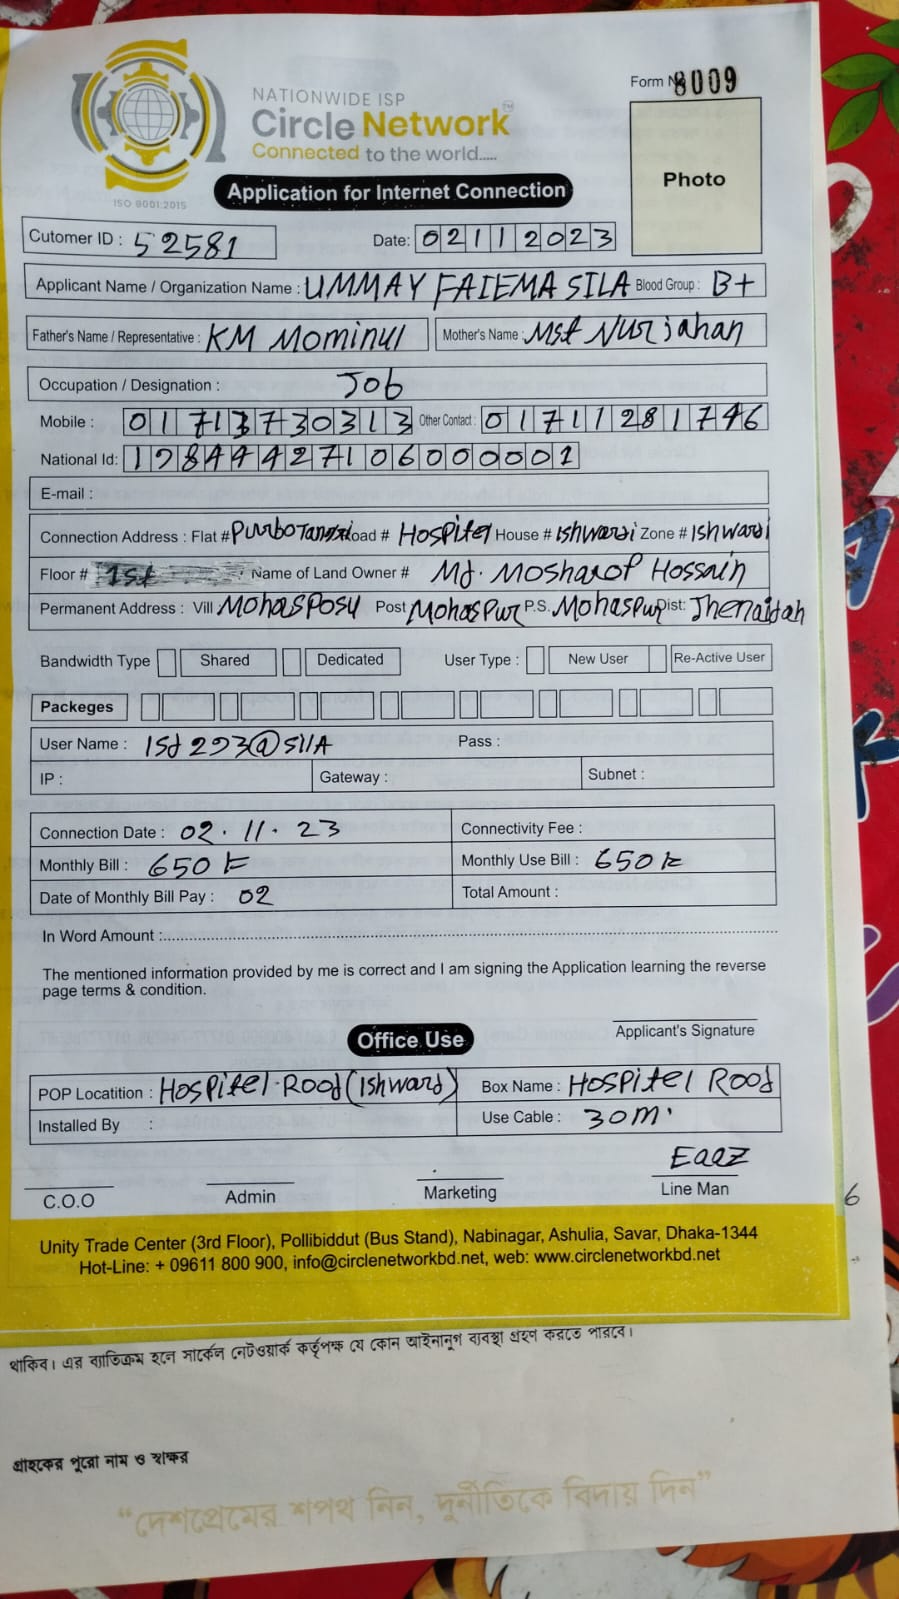 NATIONWIDE ISP
Circle Network™
Connected to the world.....
ISO 9001:2015
Form No 8009
Photo
Application for Internet Connection
Cutomer ID : 52581 Date: 02112023
Applicant Name / Organization Name : UMMAY FATEMA SILA Blood Group : B+
Father's Name / Representative : KM Mominul Mother's Name : Mst Nurjahan
Occupation / Designation : Job
Mobile : 01713730313 Other Contact : 01711281746
National Id: 19844427106000001
E-mail :
Connection Address : Flat # Road # Hospitel House # Ishwardi Zone # Ishwardi
Floor # 1st Name of Land Owner # Md. Mosharof Hossain
Permanent Address : Vill Post Mohaspur P.S. Mohaspur Dist: Jhenaidah
Bandwidth Type Shared Dedicated User Type : New User Re-Active User
Packeges
User Name : Pass :
IP : Gateway : Subnet :
Connection Date : 02.11.23 Connectivity Fee :
Monthly Bill : 650 Monthly Use Bill : 650
Date of Monthly Bill Pay : 02 Total Amount :
In Word Amount :
The mentioned information provided by me is correct and I am signing the Application learning the reverse
page terms & condition.
Applicant's Signature
Office Use
POP Locatition : Hospitel Rood (Ishward) Box Name : Hospitel Rood
Installed By : Use Cable : 30M.
C.O.O Admin Marketing Line Man
6
Unity Trade Center (3rd Floor), Pollibiddut (Bus Stand), Nabinagar, Ashulia, Savar, Dhaka-1344
Hot-Line: + 09611 800 900, info@circlenetworkbd.net, web: www.circlenetworkbd.net
থাকিব। এর ব্যতিক্রম হলে সার্কেল নেটওয়ার্ক কর্তৃপক্ষ যে কোন আইনানুগ ব্যবস্থা গ্রহণ করতে পারবে।
গ্রাহকের পুরো নাম ও স্বাক্ষর
“দেশপ্রেমের শপথ নিন, দুর্নীতিকে বিদায় দিন”